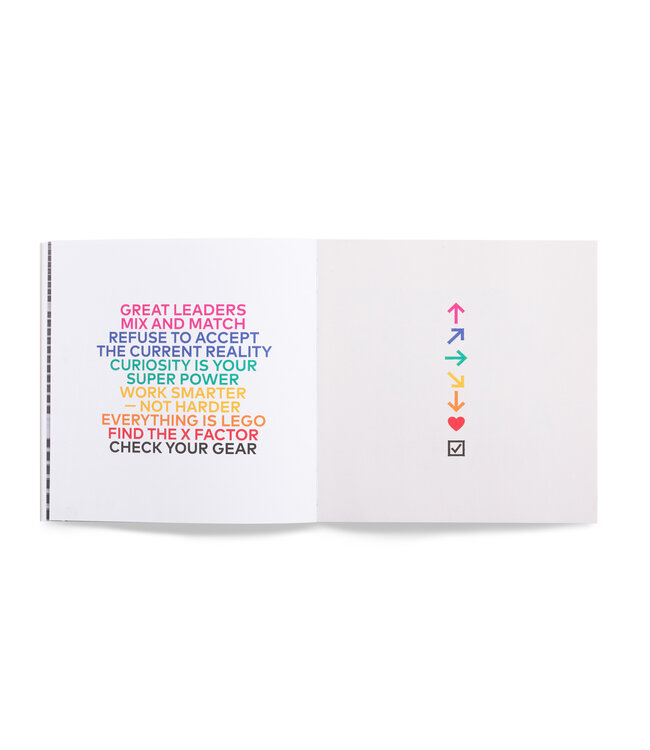 GREAT LEADERS
MIX AND MATCH
REFUSE TO ACCEPT
THE CURRENT REALITY
CURIOSITY IS YOUR
SUPER POWER
WORK SMARTER
— NOT HARDER
EVERYTHING IS LEGO
FIND THE X FACTOR
CHECK YOUR GEAR